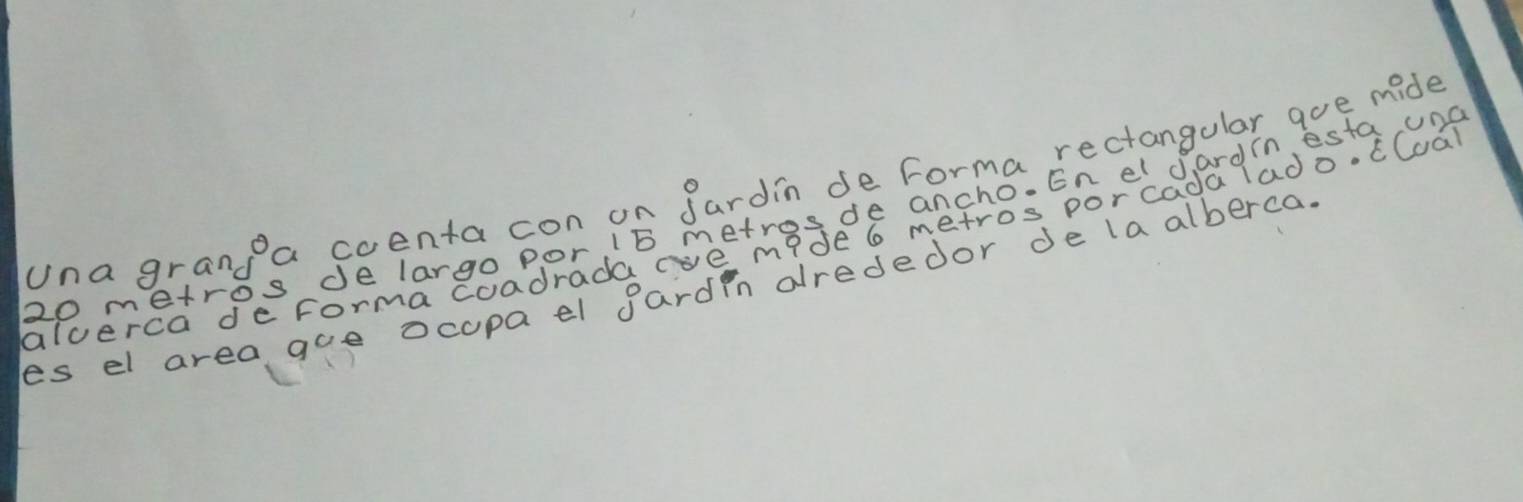 Una granja cuenta con un jardín de Forma rectangular que mide
20 metros de largo por 15 metros de ancho. En el jardín esta una
alverca de Forma cuadrada que mide 6 metros por cada lado. ¿Cuál
es el area que ocupa el jardín alrededor de la alberca.